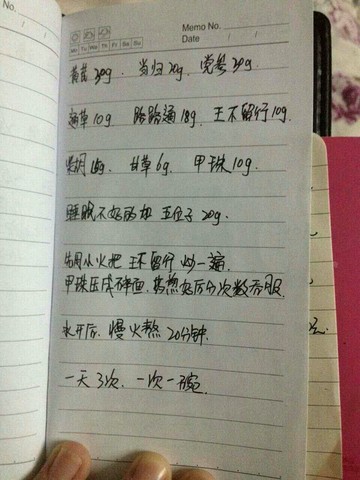 No.
Memo No.
Mo Tu We Th Fr Sa Su
Date / /
黄芪30g、当归20g、党参30g.
通草10g 路路通18g、王不留行10g.
柴胡15g、甘草6g、甲珠10g.
睡眠不好的加 五位子 20g.
先用小火把 王不留行 炒一遍.
甲珠压成碎面.熬好后分次数吞服.
水开后、慢火熬20分钟.
一天3次、一次一碗.